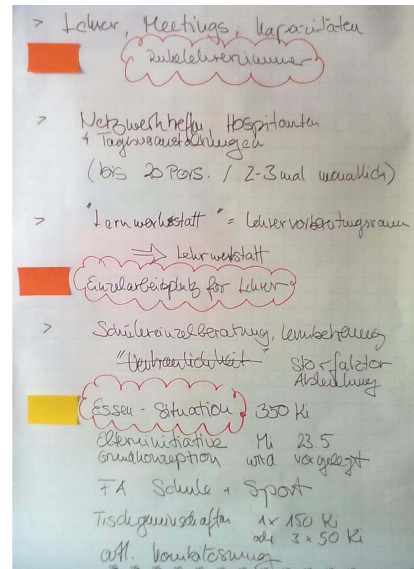 > Lehrer, Meetings, Kapazitäten
Ruhelehrerzimmer
> Netzwerktreffen, Hospitanten
+ Tagesveranstaltungen
(bis 20 Pers. / 2-3 mal monatlich)
> "Lernwerkstatt" = Lehrervorbereitungsraum
⇒ Lehrwerkstatt
Einzelarbeitsplatz für Lehrer
> Schülereinzelberatung, Lernbetreuung
"Vertraulichkeit" Störfaktor
Ablenkung
Essen - Situation 350 Ki
Elterninitiative Mi 23.5
Grundkonzeption wird vorgelegt
FA Schule + Sport
Tischgemeinschaften 1x 150 Ki
oder 3x 50 Ki
evtl. Kombilösung